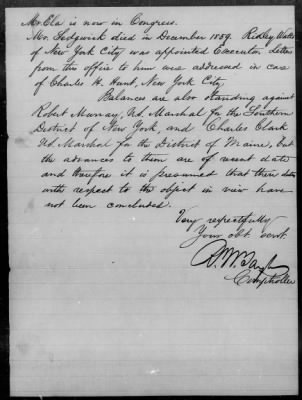 Mr. Ela is now in Congress.
Mr. Sedgwick died in December 1859. Ridley Watts
of New York City was appointed Executor, letters
from this office to him were addressed in case
of Charles H. Hunt, New York City.
Balances are also standing against
Robert Murray, U.S. Marshal for the Southern
District of New York, and Charles Clark
U.S. Marshal for the District of Maine, but
the advances to them are of recent date
and therefore it is presumed that their duties
with respect to the object in view have
not been concluded.
Very respectfully
Your obt. servt.
R. W. Tayler
Comptroller